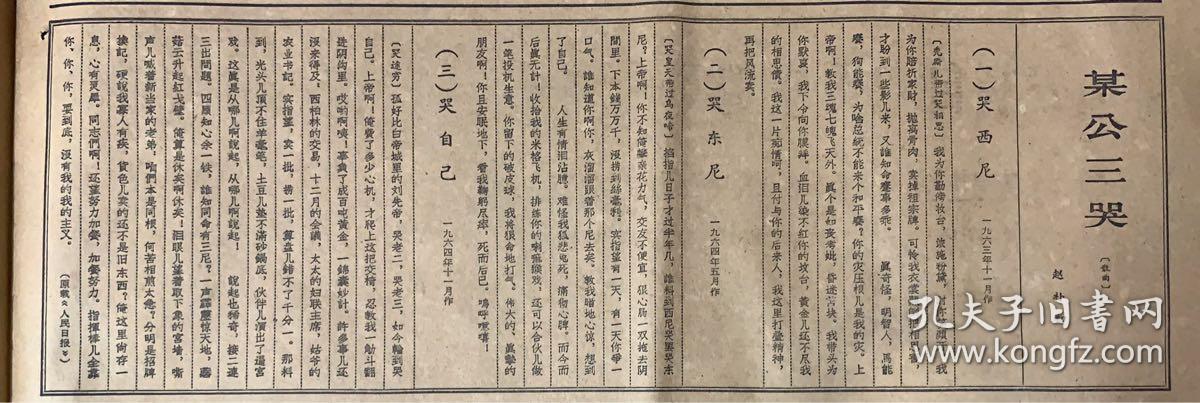 某公三哭
〔散曲〕
赵朴
(一)哭西尼 一九六三年十一月作
〔秃厮儿带过哭相思〕我为你勤傍妆台,浓施粉黛,讨你笑颜开。我
为你赔折家財,抛离骨肉,卖掉祖宗牌。可怜我衣裳颠倒把相思害,
才盼到一些影儿来,又誰知命蹇事多乖。 眞奇怪,明智人,馬能
賽,狗能賽,为啥总統不能来个和平賽?你的灾压根儿是我的灾。上
帝啊!教我三魂七魄飞天外。眞个是如丧考妣,昏迷苫块。我带头为
你默哀,我下令向你膜拜。血泪儿染不紅你的坟台,黄金儿还不尽我
的相思債。我这一片痴情呵,且付与你的后来人,我这里打叠精神,
再把风流卖。
(二)哭东尼 一九六四年五月作
〔哭皇天带过乌夜啼〕掐指儿日子才过半年几,誰料到西尼哭罢哭东
尼?上帝啊!你不知俺攀亲花力气,交友不便宜,狠心肠一双拖去阴
間里。下本錢万万千,沒捞到絲毫利。实指望有一天,有一天你爭一
口气。誰知道你啊你,灰溜溜跟着那个尼去矣。教我暗地心惊,想到
了自己。 人生有情泪沾臆。难怪我狐悲兎死,痛彻心脾。而今而
后眞无計!收拾我的米格飞机,排练你的喇嘛猴戏,还可以合伙儿做
一笔投机生意。你留下的破皮球,我将狠命地打气。伟大的、眞摯的
朋友啊!你且安眠地下,看我鞠躬尽瘁,死而后已。嗚呼噫嘻!
(三)哭自己 一九六四年十一月作
〔哭途穷〕孤好比白帝城里的刘先帝,哭老二,哭老三,如今輪到哭
自己。上帝啊!俺费了多少心机,才爬上这把交椅,忍教我一觔斗翻
进阴沟里。哎哟啊咦!辜負了成百吨黄金,一錦囊妙計。許多事儿还
沒来得及:西柏林的交易,十二月的会議,太太的妇联主席,姑爷的
农业书記。实指望,卖一批,捞一批,算盘儿錯不了千分一。那料
到,光头儿頂不住羊毫笔,土豆儿垫不滿砂鍋底,伙伴儿演出了逼宫
戏。这眞是从哪儿啊說起,从哪儿啊說起! 說起也稀奇,接二連
三出問題。四顾知心余一鉄,誰知同命有三尼?一声霹靂惊天地,蘑
菇云升起紅戈壁。俺算是休矣啊休矣!泪眼儿望着取下象的宫墙,嘶
声儿喊着新当家的老弟,咱們本是同根,何苦相煎太急?分明是招牌
換記,硬說我寡人有疾,貨色儿卖的还不是旧东西?俺这里尙存一
息,心有灵犀。同志們啊!还望努力加餐,加餐努力。指揮棒儿全靠
你、你、你,耍到底,沒有我的我的主义。
(原載《人民日报》)
孔夫子旧书网
www.kongfz.com